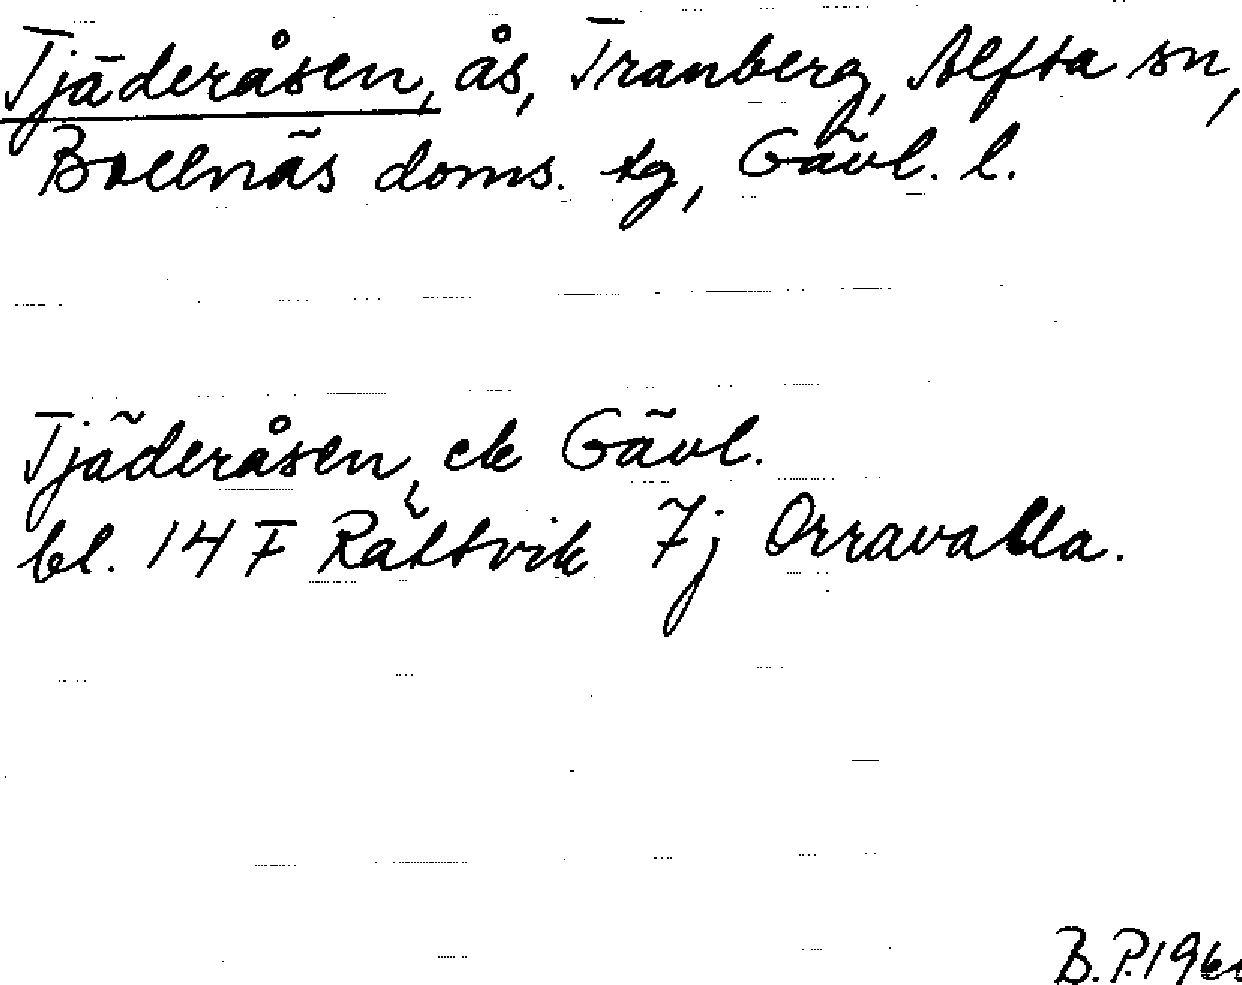 Tjäderåsen, ås, Tranberg, Alfta sn,
Bollnäs doms. tg, Gävl. l.
Tjäderåsen, ek Gävl.
bl. 14 F Rättvik 7j Orravalla.
B. P.